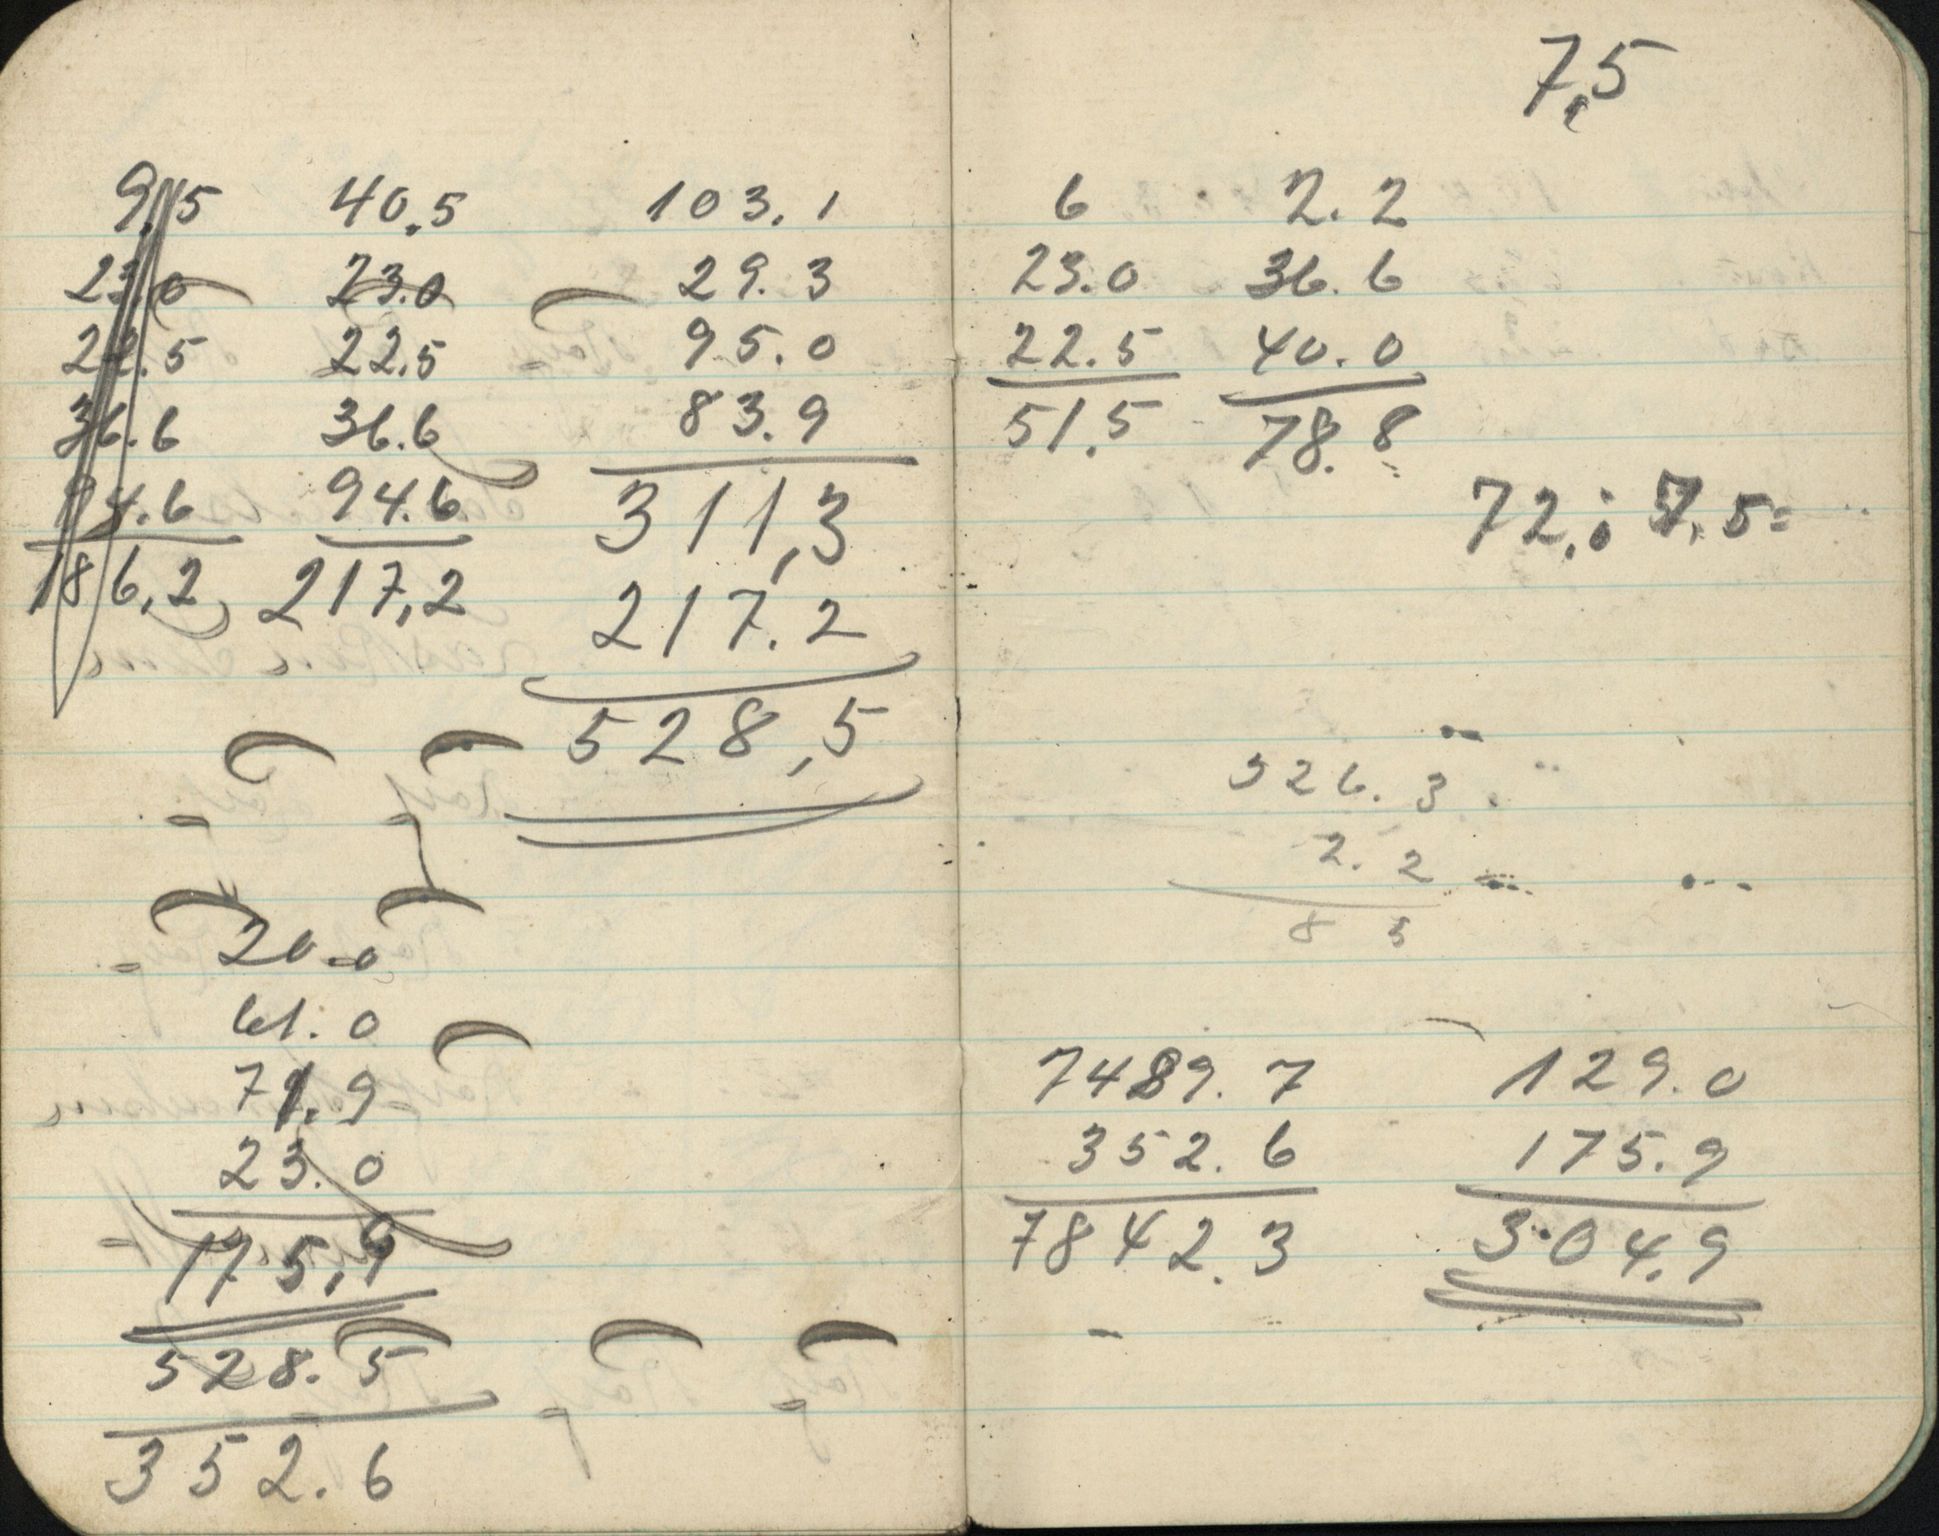 9.5 40.5 103.1
23.0 23.0 29.3
22.5 22.5 95.0
36.6 36.6 83.9
94.6 94.6 311,3
186,2 217,2 217.2
528,5
20.0
61.0
71.9
23.0
175,9
528.5
352.6
7,5
6 2.2
23.0 36.6
22.5 40.0
51.5 78.8
72,: 7,5=
526.3
2.2
8 5
7489.7 129.0
352.6 175.9
7842.3 304.9